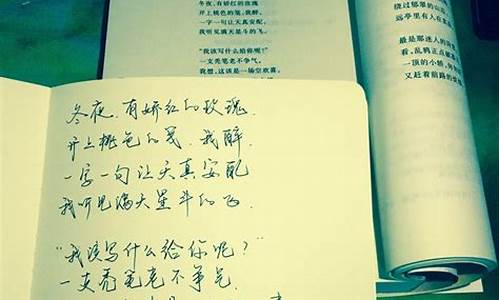 冬夜,有娇红的玫瑰
开上桃色的笺,我醉,
一字一句让天真安配,
我听见满天星斗的飞。
“我该写什么给你呢?”
一支秃笔老不争气,
我想,这该是一场空欢喜,
绕过郁翠的山
远亭里有人在
最是那迷人的
看,乱鸦正点破
一顶的小轿,
又赶着前路的
冬夜,有娇红的玫瑰
开上桃色的笺,我醉,
一字一句让天真安配
我听见满天星斗的飞。
“我该写什么给你呢?”
一支秃笔老不争气,